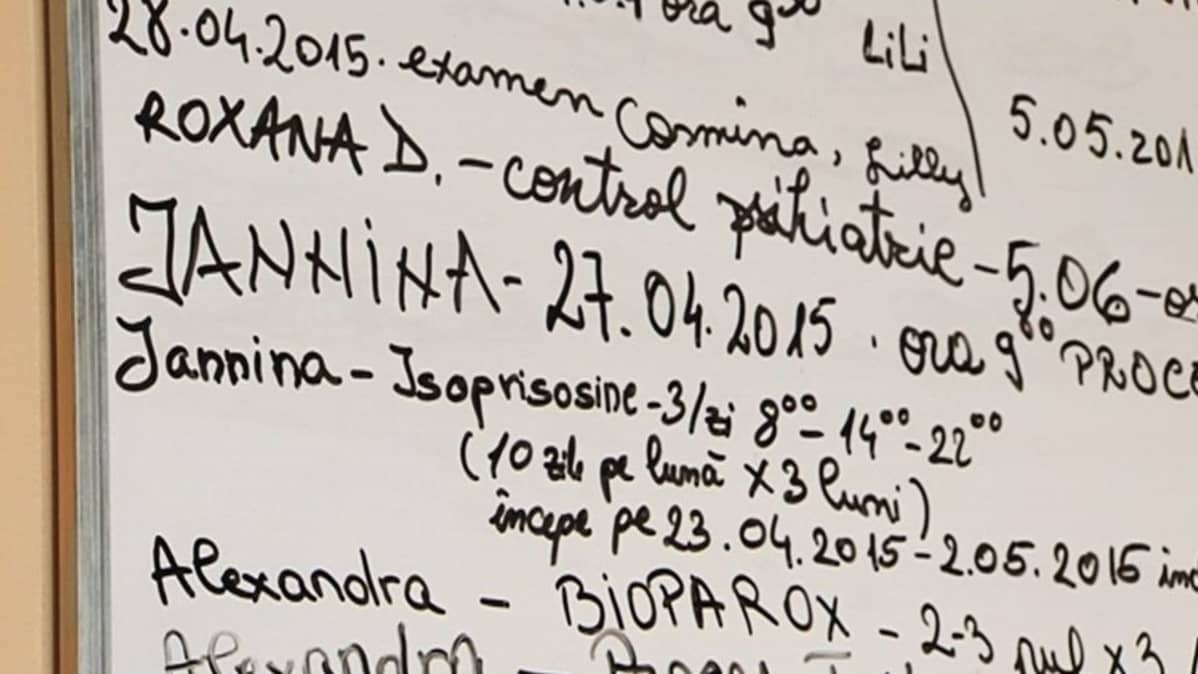 ora 9⁰⁰ LiLi
28.04.2015. examen Cosmina, Lilly
5.05.201
ROXANA D. - control psihiatric - 5.06 -
JANNINA - 27.04.2015. ora 9⁰⁰ PROCE
Jannina - Isoprisosine - 3/zi 8⁰⁰ - 14⁰⁰ - 22⁰⁰
(10 zile pe lună x 3 luni)
începe pe 23.04.2015 - 2.05.2015
Alexandra - BiOPAROX - 2-3 x 3
Alexandra -